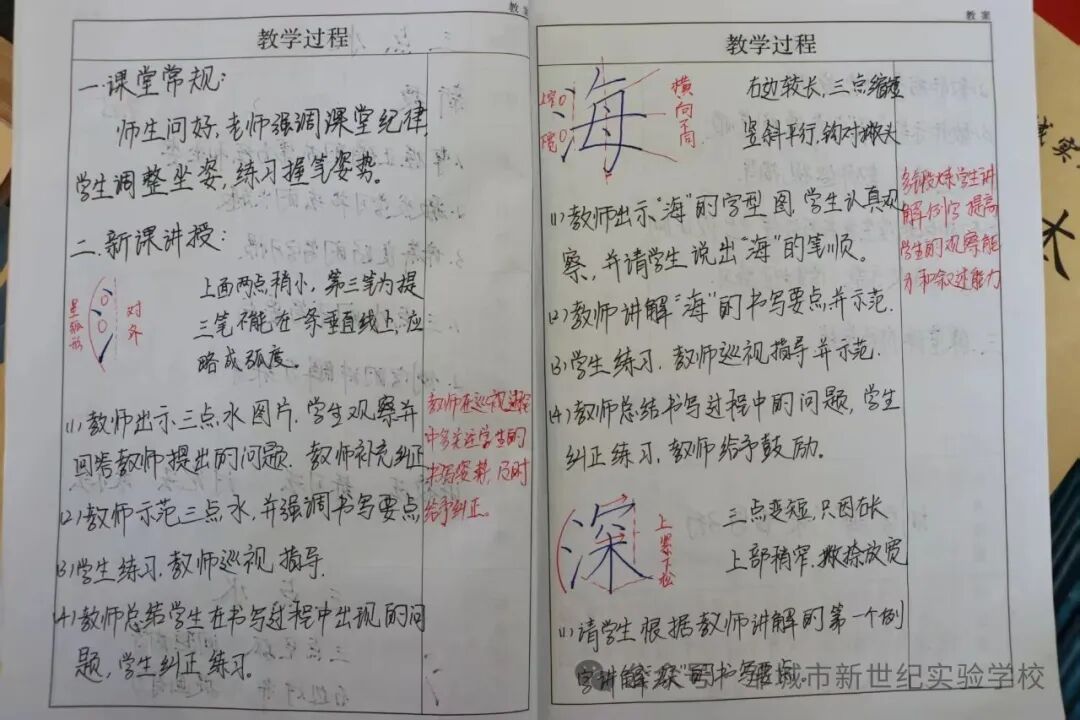 教案
教学过程
一.课堂常规:
师生问好,老师强调课堂纪律,
学生调整坐姿,练习握笔姿势。
二.新课讲授:
呈弧形
对齐
上面两点稍小,第三笔为提
三笔不能在一条垂直线上,应
略成弧度。
(1)教师出示三点水图片,学生观察并
回答教师提出的问题.教师补充纠正
(2)教师示范三点水,并强调书写要点
(3)学生练习,教师巡视指导.
(4)教师总结学生在书写过程中出现的问
题,学生纠正练习.
教师在巡视过程
中多关注学生的
书写姿势,及时
给予纠正。
教案
教学过程
海
横向不同
右边较长,三点缩短
竖斜平行,钩对撇头
(1)教师出示"海"的字型图,学生认真观
察,并请学生说出"海"的笔顺。
(2)教师讲解"海"的书写要点并示范.
(3)学生练习.教师巡视指导并示范.
(4)教师总结书写过程中的问题,学生
纠正练习.教师给予鼓励。
学生讲
解例字,提高
学生的观察能
力和叙述能力
深
上紧下松
三点变短,只因右长
上部稍窄,撇捺放宽
(1)请学生根据教师讲解的第一个例
字讲解"深"的书写要点.
城市新世纪实验学校